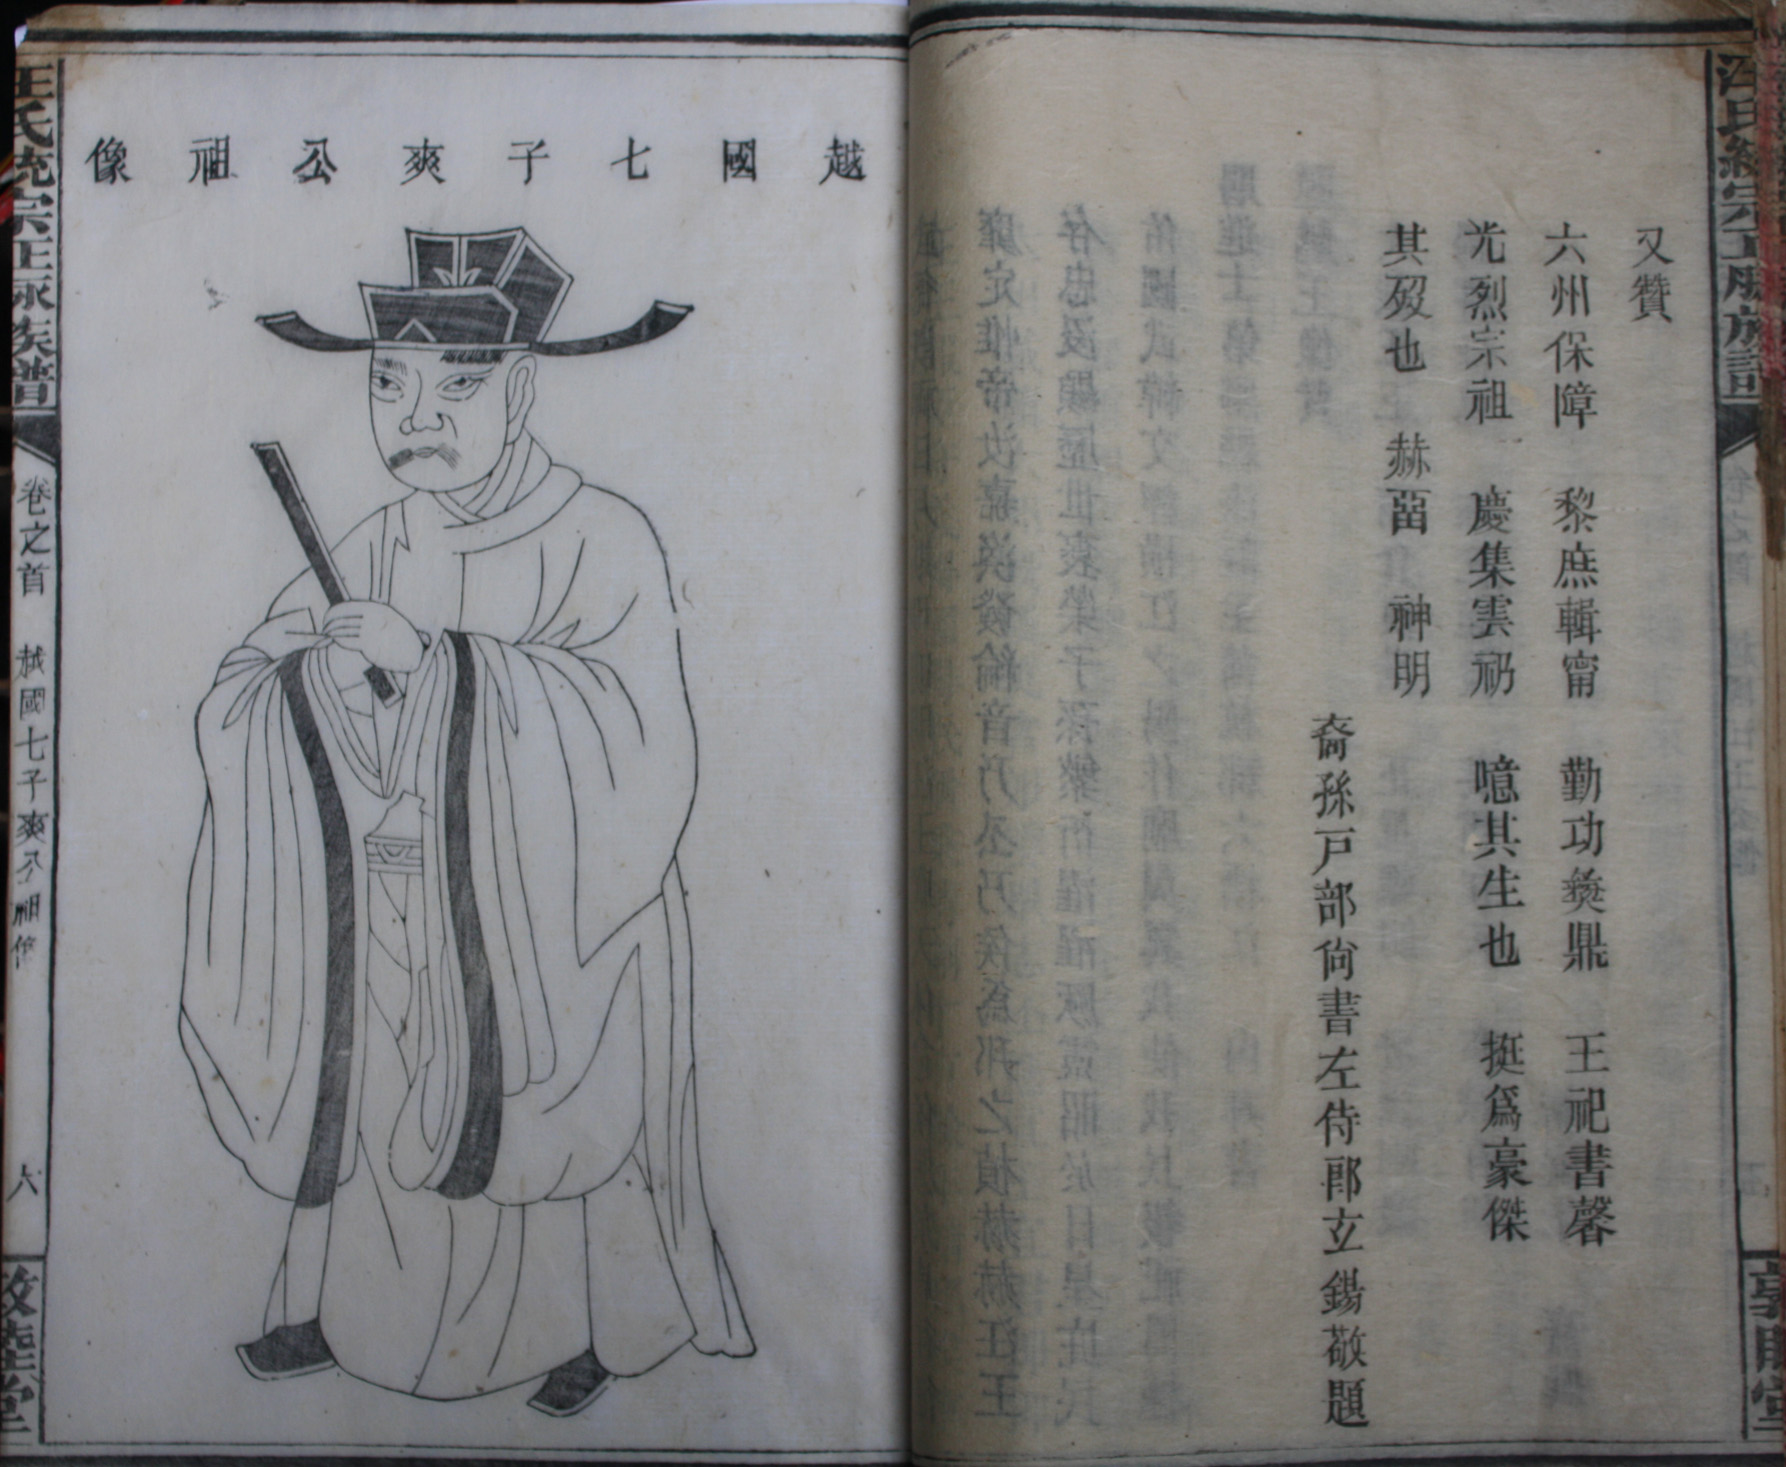 又贊
六州保障 黎庶輯甯 勤功彝鼎 王祀書馨
光烈宗祖 慶集雲礽 噫其生也 挺爲豪傑
其歿也 赫啚 神明
裔孫戸部尙書左侍郎立錫敬題
越國七子爽公祖像
汪氏統宗正脉族譜
卷之首 越國七子爽公祖像
六
敦睦堂